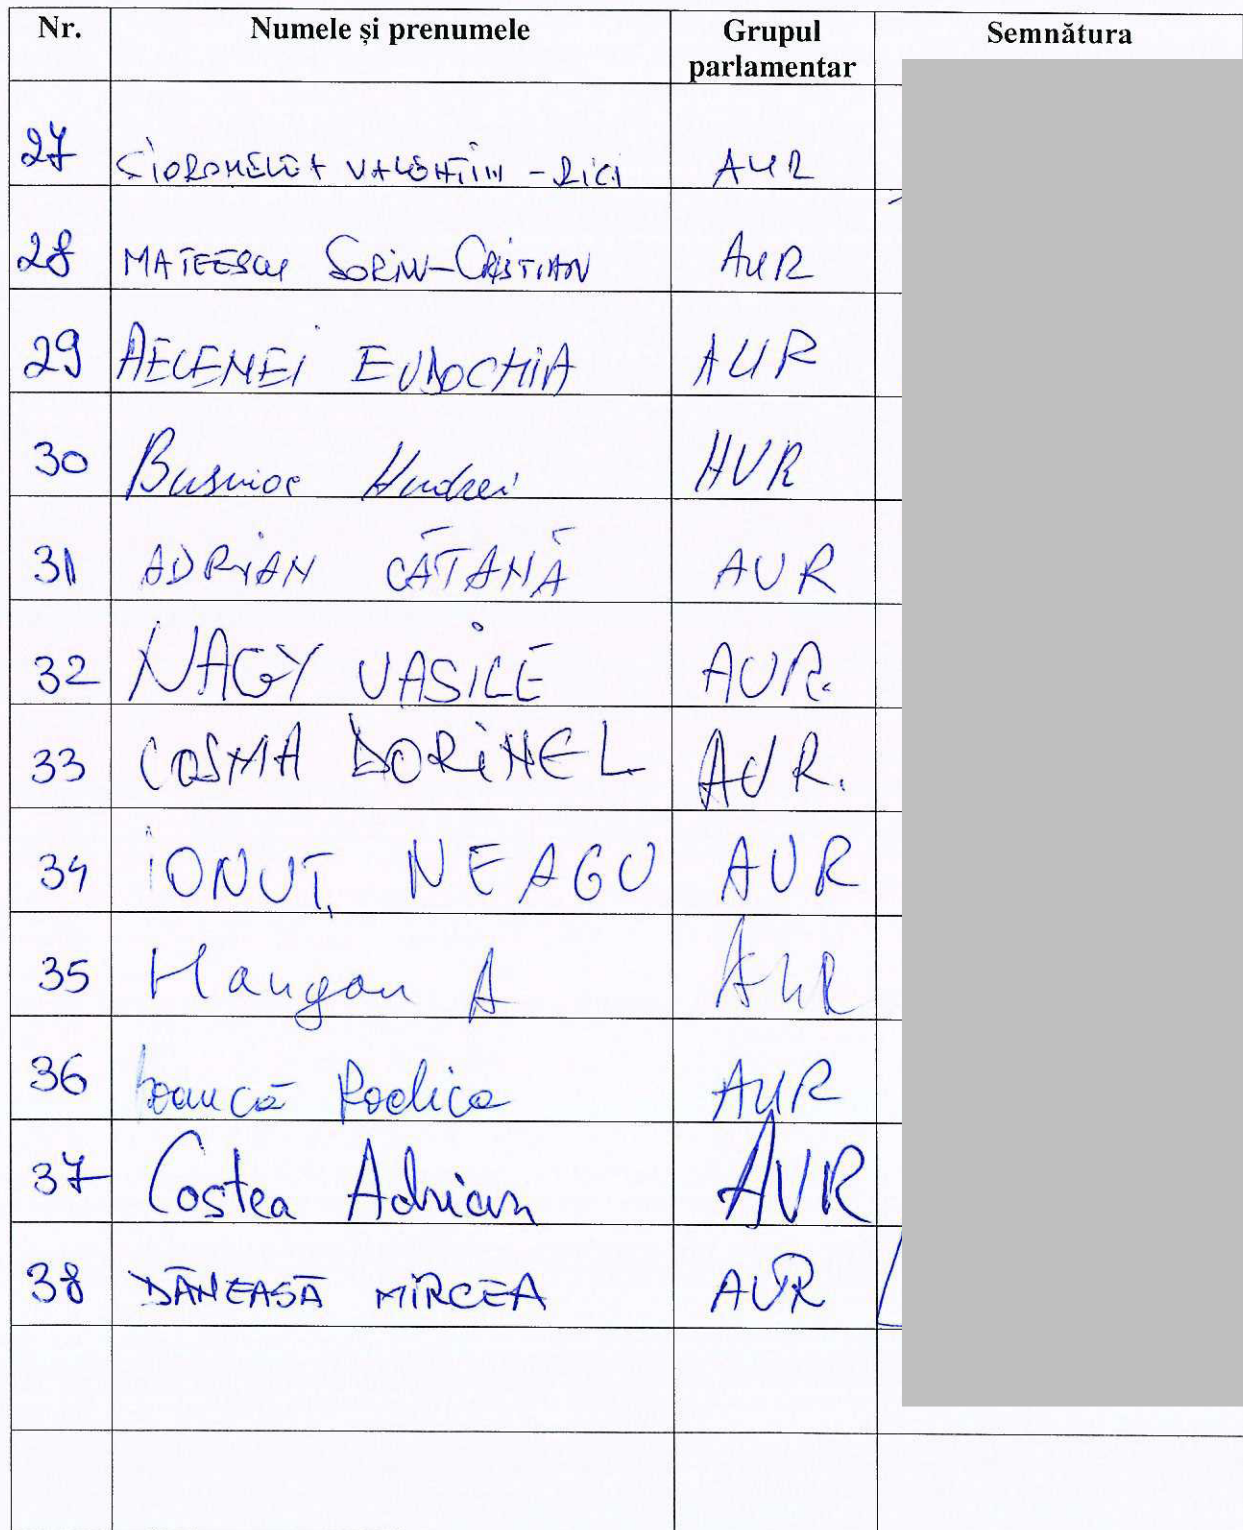 Nr. Numele și prenumele Grupul parlamentar Semnătura
27 VALENTIN-RICI AUR
28 MATEESCU SORIN-CRISTIAN AUR
29 AELENEI EUDOCHIA AUR
30 Busuioc Andrei AUR
31 ADRIAN CĂTANĂ AUR
32 NAGY VASILE AUR.
33 COSMA DORINEL AUR.
34 IONUȚ NEAGU AUR
35 Hangan A AUR
36 Rodica AUR
37 Costea Adrian AUR
38 DĂNEASĂ MIRCEA AUR